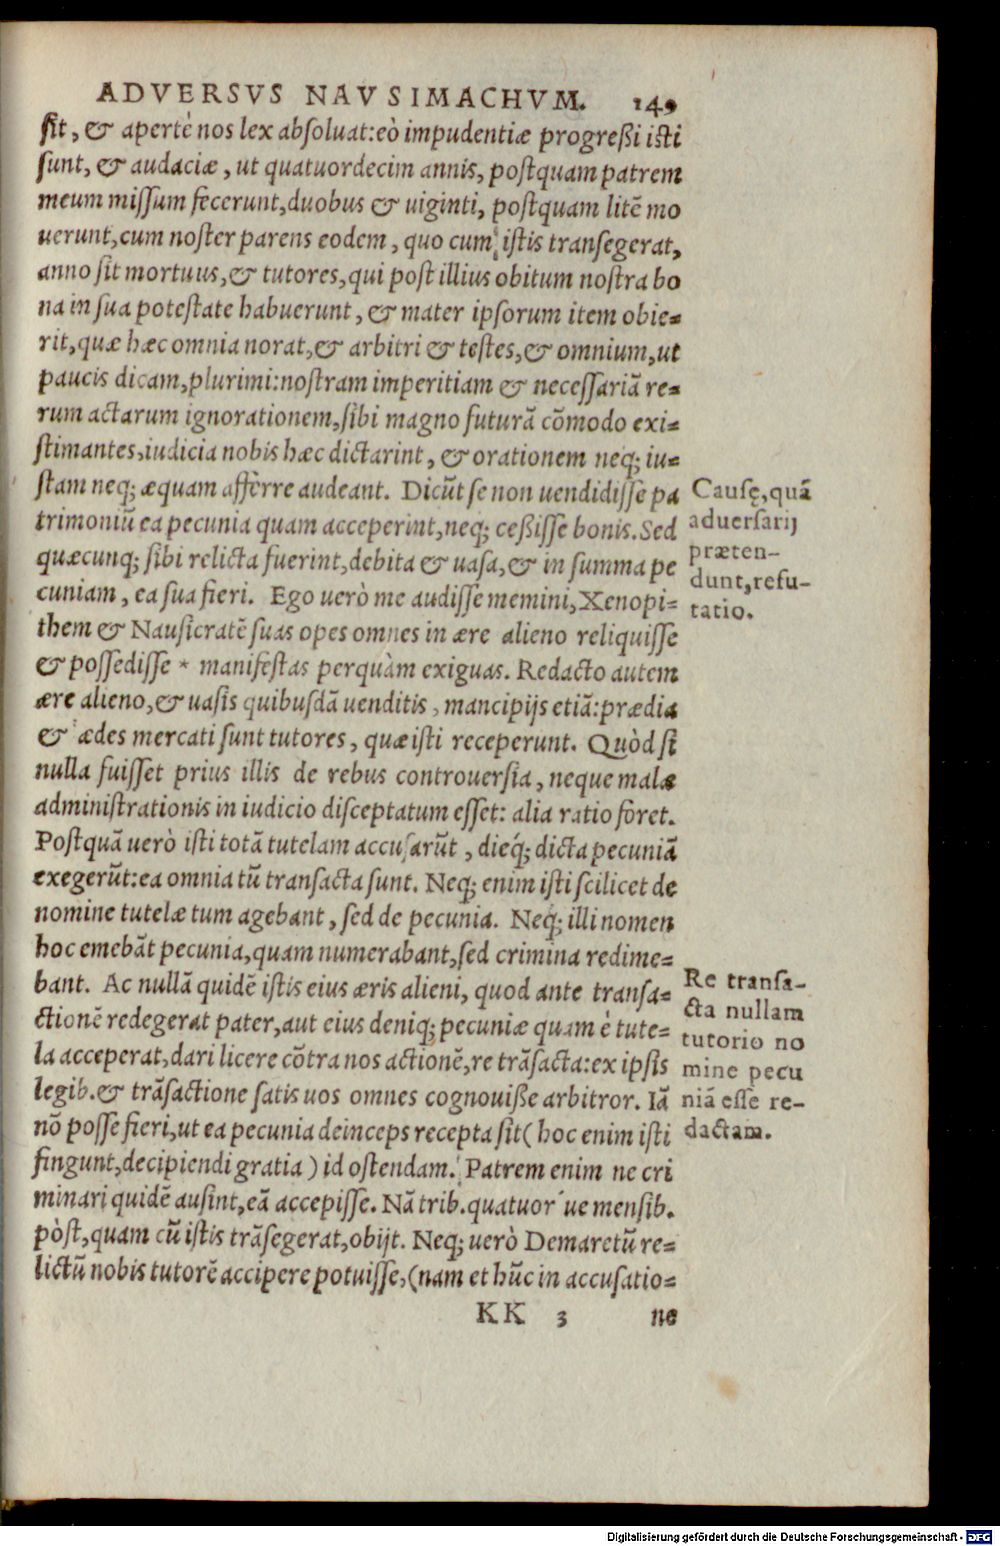 ADVERSVS NAVSIMACHVM. 149
sit, & apertè nos lex absoluat: eò impudentiæ progreßi isti
sunt, & audaciæ, ut quatuordecim annis, postquam patrem
meum missum fecerunt, duobus & uiginti, postquam litē mo
uerunt, cum noster parens eodem, quo cum istis transegerat,
anno sit mortuus, & tutores, qui post illius obitum nostra bo
na in sua potestate habuerunt, & mater ipsorum item obie=
rit, quæ hæc omnia norat, & arbitri & testes, & omnium, ut
paucis dicam, plurimi: nostram imperitiam & necessariā re=
rum actarum ignorationem, sibi magno futurā cōmodo exi=
stimantes, iudicia nobis hæc dictarint, & orationem neq; iu=
stam neq; æquam afferre audeant. Dicūt se non uendidisse pa
trimoniū ea pecunia quam acceperint, neq; ceßisse bonis. Sed
quæcunq; sibi relicta fuerint, debita & uasa, & in summa pe
cuniam, ea sua fieri. Ego uerò me audisse memini, Xenopi=
them & Nausicratē suas opes omnes in ære alieno reliquisse
& possedisse * manifestas perquàm exiguas. Redacto autem
ære alieno, & uasis quibusdā uenditis, mancipijs etiā: prædia
& ædes mercati sunt tutores, quæ isti receperunt. Quòd si
nulla fuisset prius illis de rebus controuersia, neque malæ
administrationis in iudicio disceptatum esset: alia ratio foret.
Postquā uerò isti totā tutelam accusarūt, dieq́; dicta pecuniā
exegerūt: ea omnia tū transacta sunt. Neq; enim isti scilicet de
nomine tutelæ tum agebant, sed de pecunia. Neq; illi nomen
hoc emebāt pecunia, quam numerabant, sed crimina redime=
bant. Ac nullā quidē istis eius æris alieni, quod ante transa=
ctionē redegerat pater, aut eius deniq; pecuniæ quam è tute=
la acceperat, dari licere cōtra nos actionē, re trāsacta: ex ipsis
legib. & trāsactione satis uos omnes cognouiße arbitror. Iā
nō posse fieri, ut ea pecunia deinceps recepta sit (hoc enim isti
fingunt, decipiendi gratia) id ostendam. Patrem enim ne cri
minari quidē ausint, eā accepisse. Nā trib. quatuor ue mensib.
pòst, quam cū istis trāsegerat, obijt. Neq; uerò Demaretū re=
lictū nobis tutorē accipere potuisse, (nam et hūc in accusatio=
KK 3 ne
Causę, quā
aduersarij
præten-
dunt, refu-
tatio.
Re transa-
cta nullam
tutorio no
mine pecu
niā esse re-
dactam.
Digitalisierung gefördert durch die Deutsche Forschungsgemeinschaft - DFG